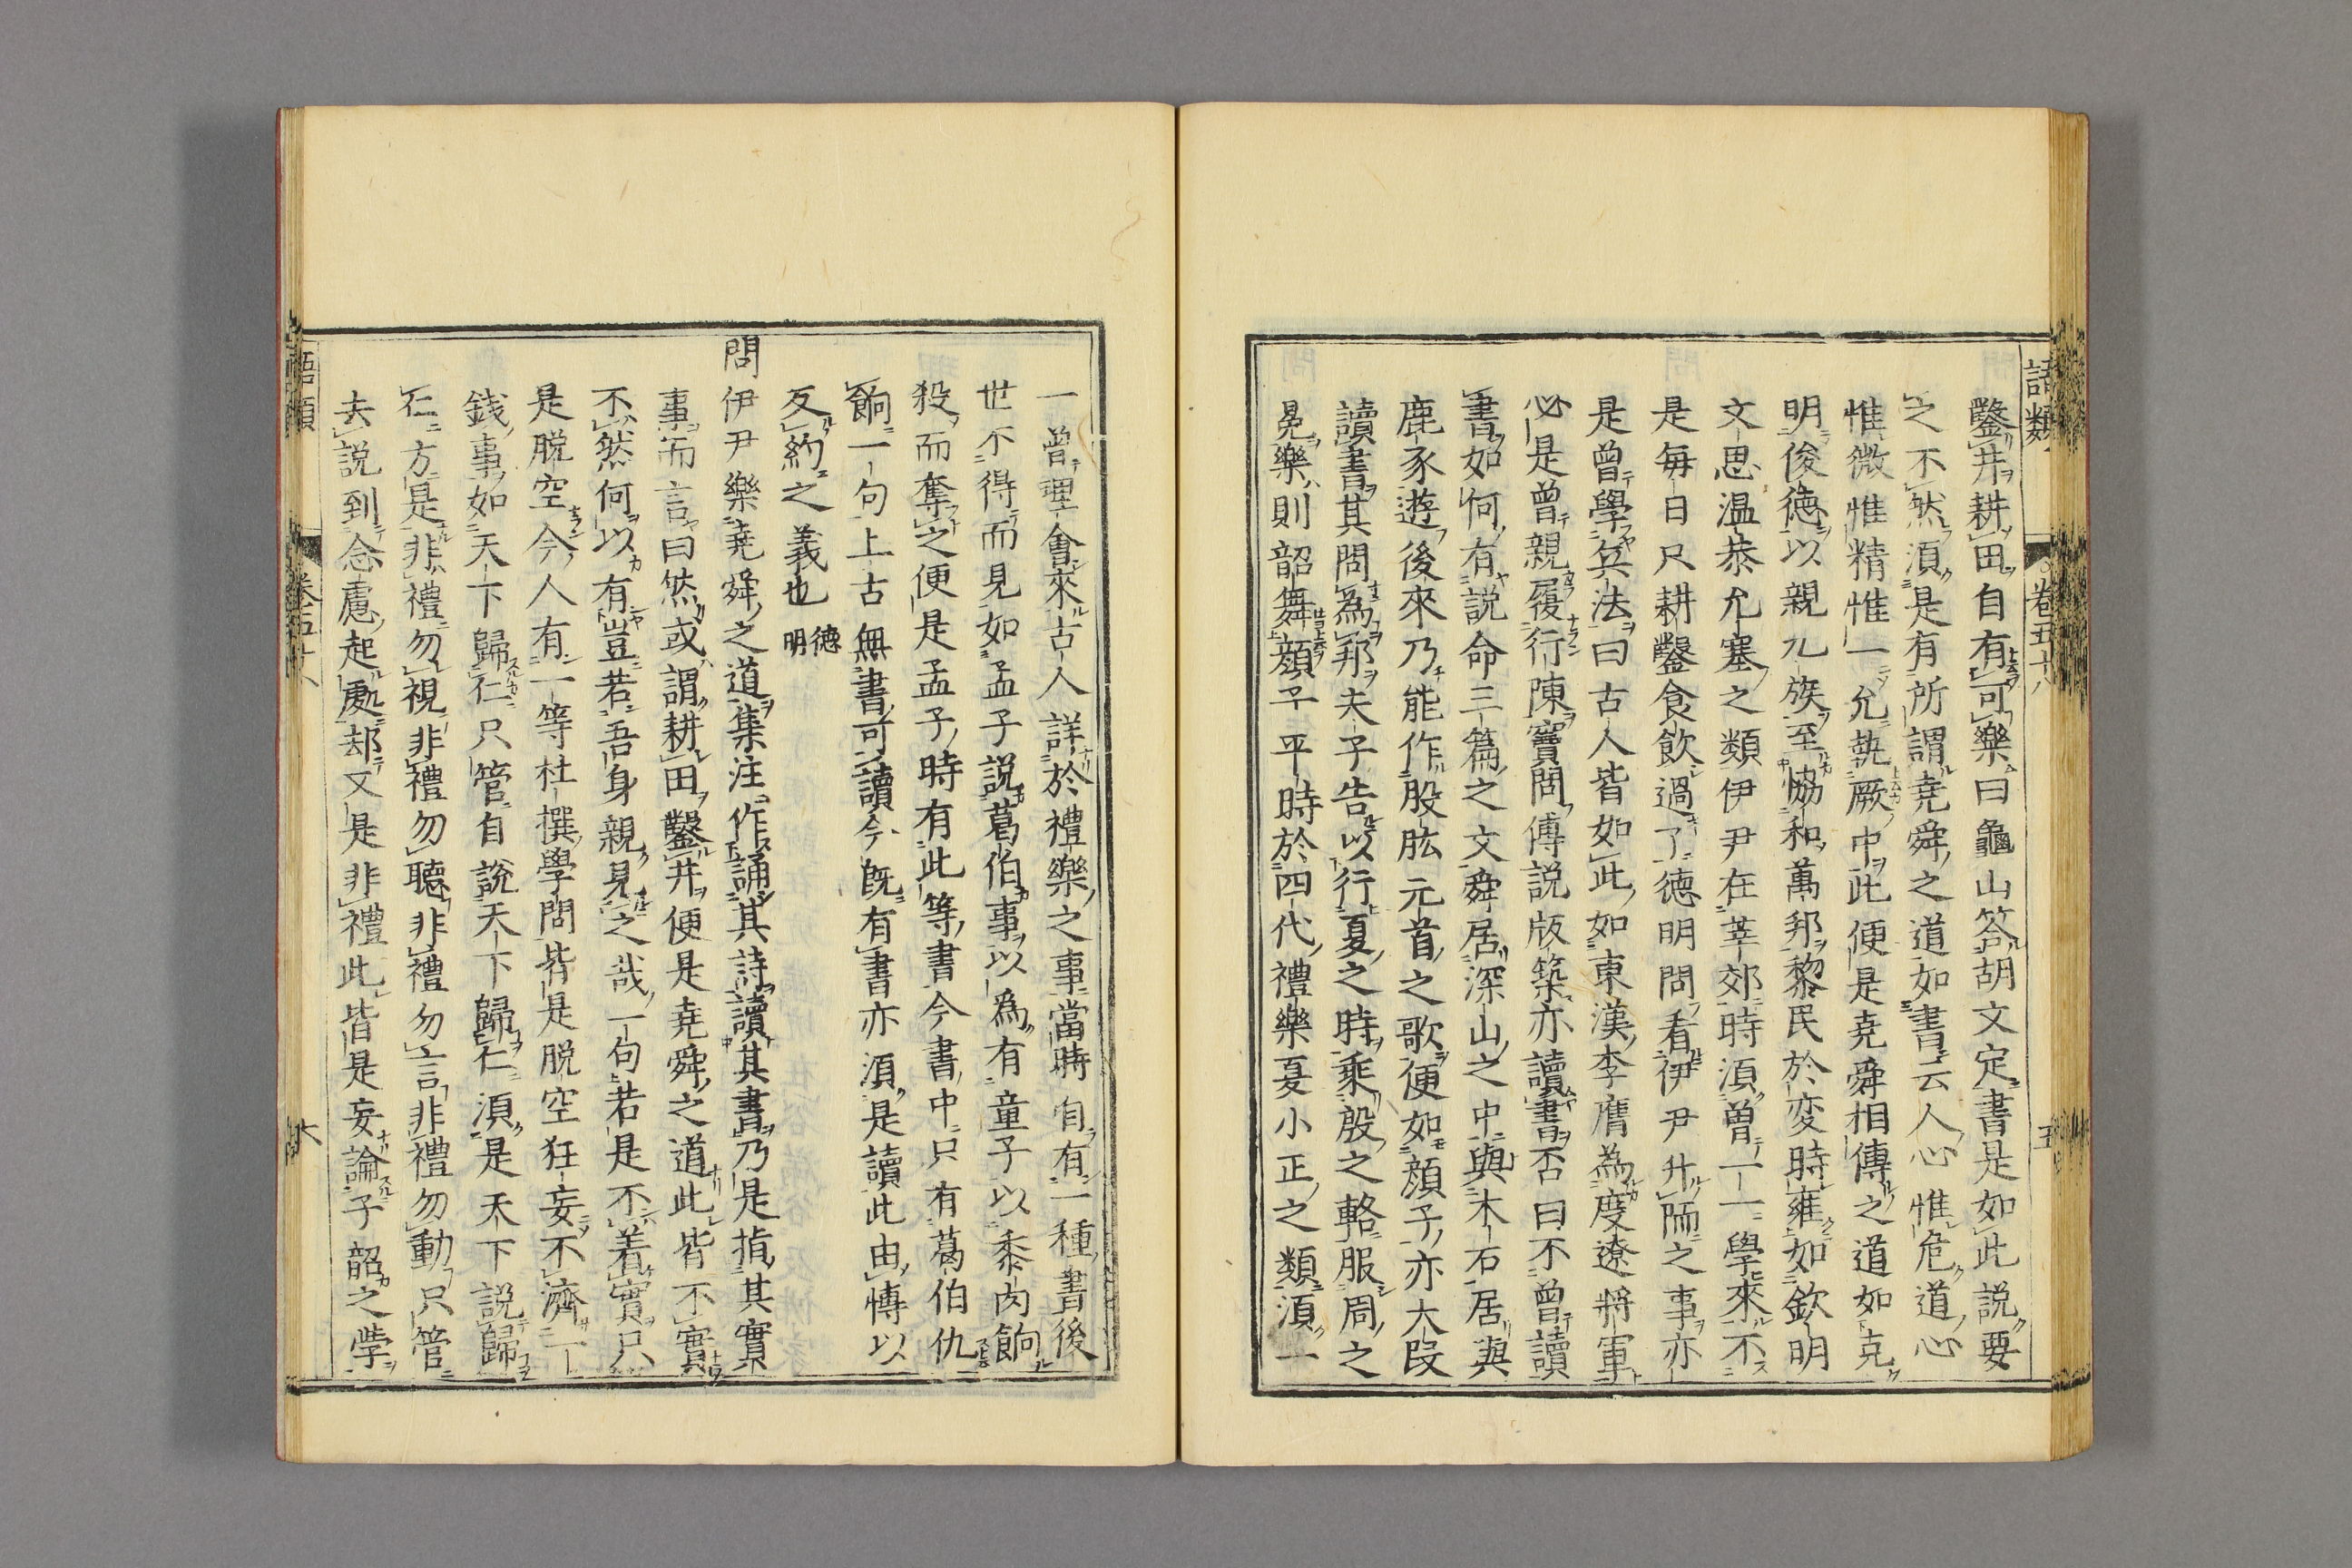 語類 卷五十八 五
鑿井耕田自有可樂曰龜山答胡文定書是如此説要
之不然湏是有所謂堯舜之道如書云人心惟危道心
惟微惟精惟一允執厥中此便是堯舜相傳之道如克
明俊徳以親九族至恊和萬邦黎民於変時雍如欽明
文思温恭允塞之類伊尹在莘郊時湏曽一一學來不
是毎日只耕鑿食飲過了徳明問看伊尹升陑之事亦
是曾學兵法曰古人皆如此如東漢李膺為度遼將軍
必是曾親履行陳寶問傅説版築亦讀書否曰不曾讀
書如何有説命三篇之文舜居深山之中與木石居與
鹿豕遊後來乃能作股肱元首之歌便如顔子亦大段
讀書其問為邦夫子告以行夏之時乘殷之輅服周之
冕樂則韶舞顔子平時於四代禮樂夏小正之類湏一
一曾理會來古人詳於禮樂之事當時自有一種書後
世不得而見如孟子説葛伯事以為有童子以黍肉餉
殺而奪之便是孟子時有此等書今書中只有葛伯仇
餉一句上古無書可讀今既有書亦湏是讀此由博以
反約之義也 徳明
問伊尹樂堯舜之道集注作誦其詩讀其書乃是指其實
事而言曰然或謂耕田鑿井便是堯舜之道此皆不實
不然何以有豈若吾身親見之哉一句若是不着實只
是脱空今人有一等杜撰學問皆是脱空狂妄不濟一
錢事如天下歸仁只管自説天下歸仁湏是天下説歸
仁方是非禮勿視非禮勿聽非禮勿言非禮勿動只管
去説到念慮起處却又是非禮此皆是妄論子韶之學
語類 卷五十八 六